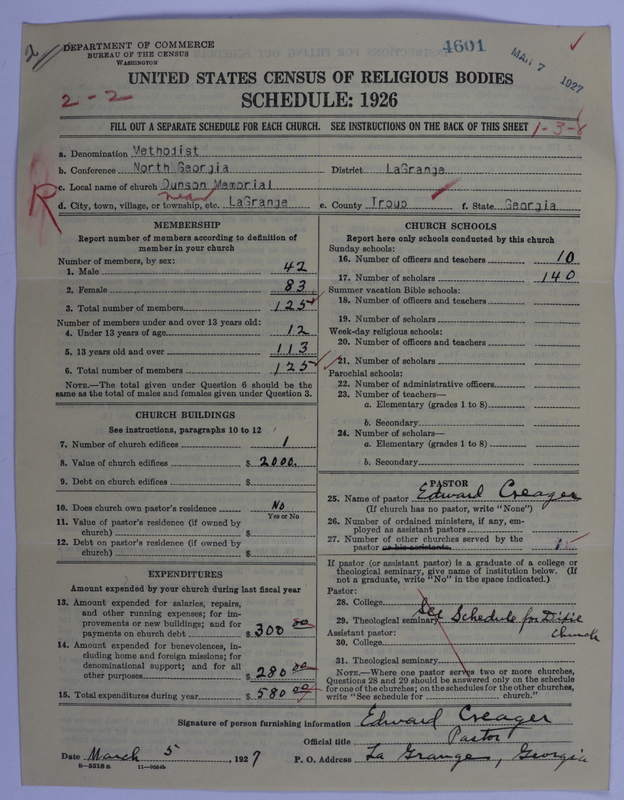 2
DEPARTMENT OF COMMERCE
BUREAU OF THE CENSUS
WASHINGTON
4601
MAR 7 1927
UNITED STATES CENSUS OF RELIGIOUS BODIES
2-2
SCHEDULE: 1926
FILL OUT A SEPARATE SCHEDULE FOR EACH CHURCH. SEE INSTRUCTIONS ON THE BACK OF THIS SHEET
1-3-8
a. Denomination Methodist
b. Conference North Georgia District LaGrange
c. Local name of church Dunson Memorial
R
near
d. City, town, village, or township, etc. LaGrange e. County Troup f. State Georgia
MEMBERSHIP
Report number of members according to definition of
member in your church
Number of members, by sex:
1. Male 42
2. Female 83
3. Total number of members 125
Number of members under and over 13 years old:
4. Under 13 years of age 12
5. 13 years old and over 113
6. Total number of members 125
NOTE.—The total given under Question 6 should be
same as the total of males and females given under Question 3.
CHURCH BUILDINGS
See instructions, paragraphs 10 to 12
7. Number of church edifices 1
8. Value of church edifices $ 2000.
9. Debt on church edifices $
10. Does church own pastor's residence No
Yes or No
11. Value of pastor's residence (if owned by
church) $
12. Debt on pastor's residence (if owned by
church) $
EXPENDITURES
Amount expended by your church during last fiscal year
13. Amount expended for salaries, repairs,
and other running expenses; for im-
provements or new buildings; and for
payments on church debt $ 300 00
14. Amount expended for benevolences, in-
cluding home and foreign missions; for
denominational support; and for all
other purposes $ 280 00
15. Total expenditures during year $ 580 00
CHURCH SCHOOLS
Report here only schools conducted by this church
Sunday schools:
16. Number of officers and teachers 10
17. Number of scholars 140
Summer vacation Bible schools:
18. Number of officers and teachers
19. Number of scholars
Week-day religious schools:
20. Number of officers and teachers
21. Number of scholars
Parochial schools:
22. Number of administrative officers
23. Number of teachers—
a. Elementary (grades 1 to 8)
b. Secondary
24. Number of scholars—
a. Elementary (grades 1 to 8)
b. Secondary
PASTOR
25. Name of pastor Edward Creager
(If church has no pastor, write "None")
26. Number of ordained ministers, if any, em-
ployed as assistant pastors
27. Number of other churches served by the
pastor or his assistants 1
If pastor (or assistant pastor) is a graduate of a college or
theological seminary, give name of institution below. (If
not a graduate, write "No" in the space indicated.)
Pastor:
28. College
29. Theological seminary See Schedule for Dixie Church
Assistant pastor:
30. College
31. Theological seminary
NOTE.—Where one pastor serves two or more churches,
Questions 28 and 29 should be answered only on the schedule
for one of the churches; on the schedules for the other churches,
write "See schedule for church."
Signature of person furnishing information Edward Creager
Official title Pastor
Date March 5, 1927 P. O. Address La Grange, Georgia
6—5518a 11—9564b